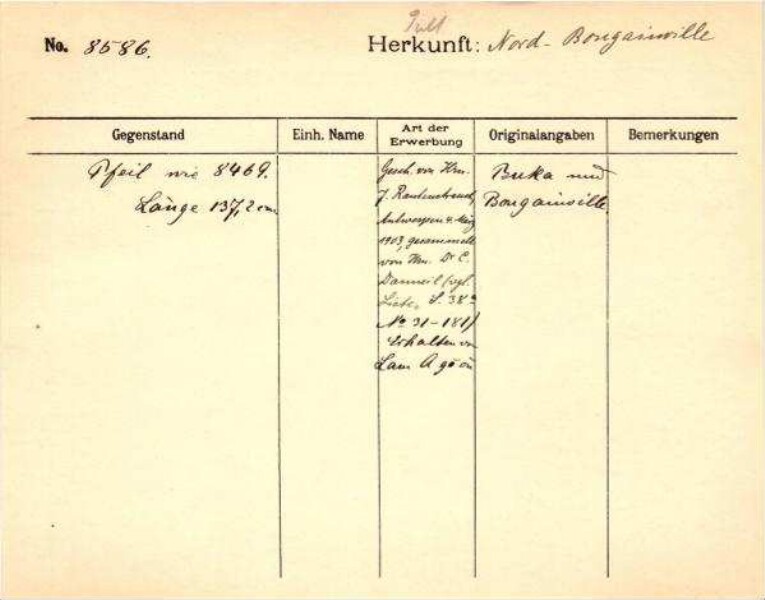 No. 8586.
Herkunft: Nord-Bougainville
Gegenstand
Einh. Name
Art der
Erwerbung
Originalangaben
Bemerkungen
Pfeil wie 8469.
Länge 137,2 cm
Gesch. von Hrn.
J. Rautenstrauch,
Antwerpen 4. März
1903, gesammelt
von Hrn. Dr C.
Danneil (vgl.
Liste, S. 38
No 31-181)
Erhalten von
Lam
Buka und
Bougainville.